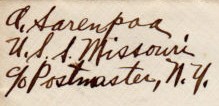 O. Sarenpaa
U.S.S. Missouri
c/o Postmaster, N.Y.